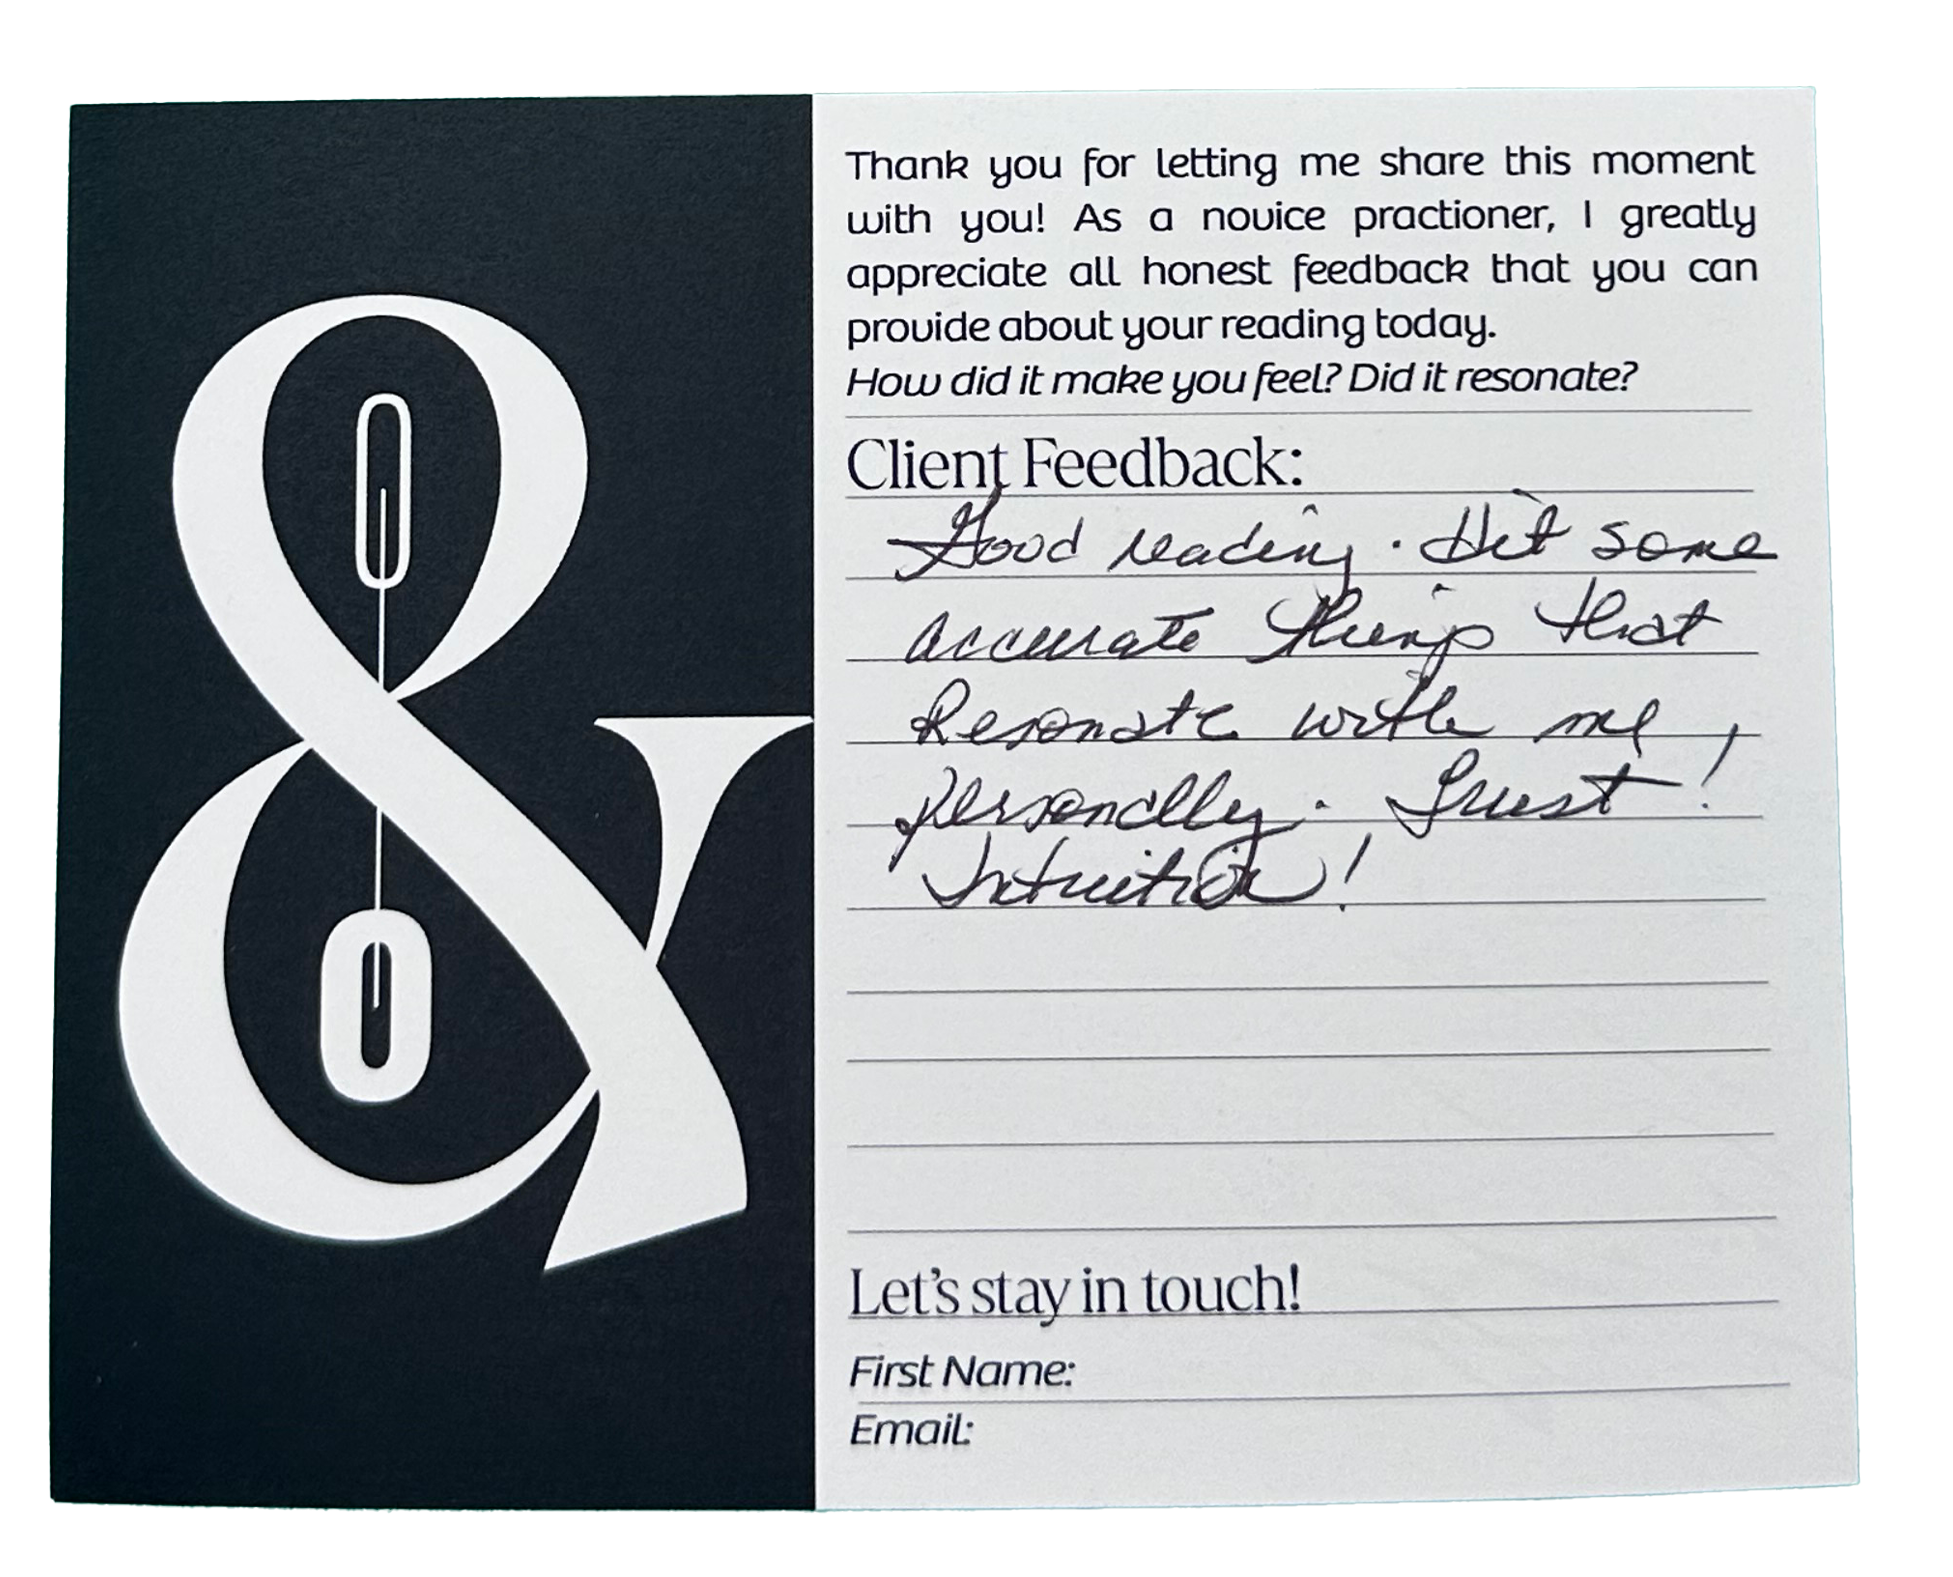 &
Thank you for letting me share this moment
with you! As a novice practioner, I greatly
appreciate all honest feedback that you can
provide about your reading today.
How did it make you feel? Did it resonate?
Client Feedback:
Good reading. Hit some
accurate things that
Resonate with me
personally. Trust!
Intuition!
Let's stay in touch!
First Name:
Email: